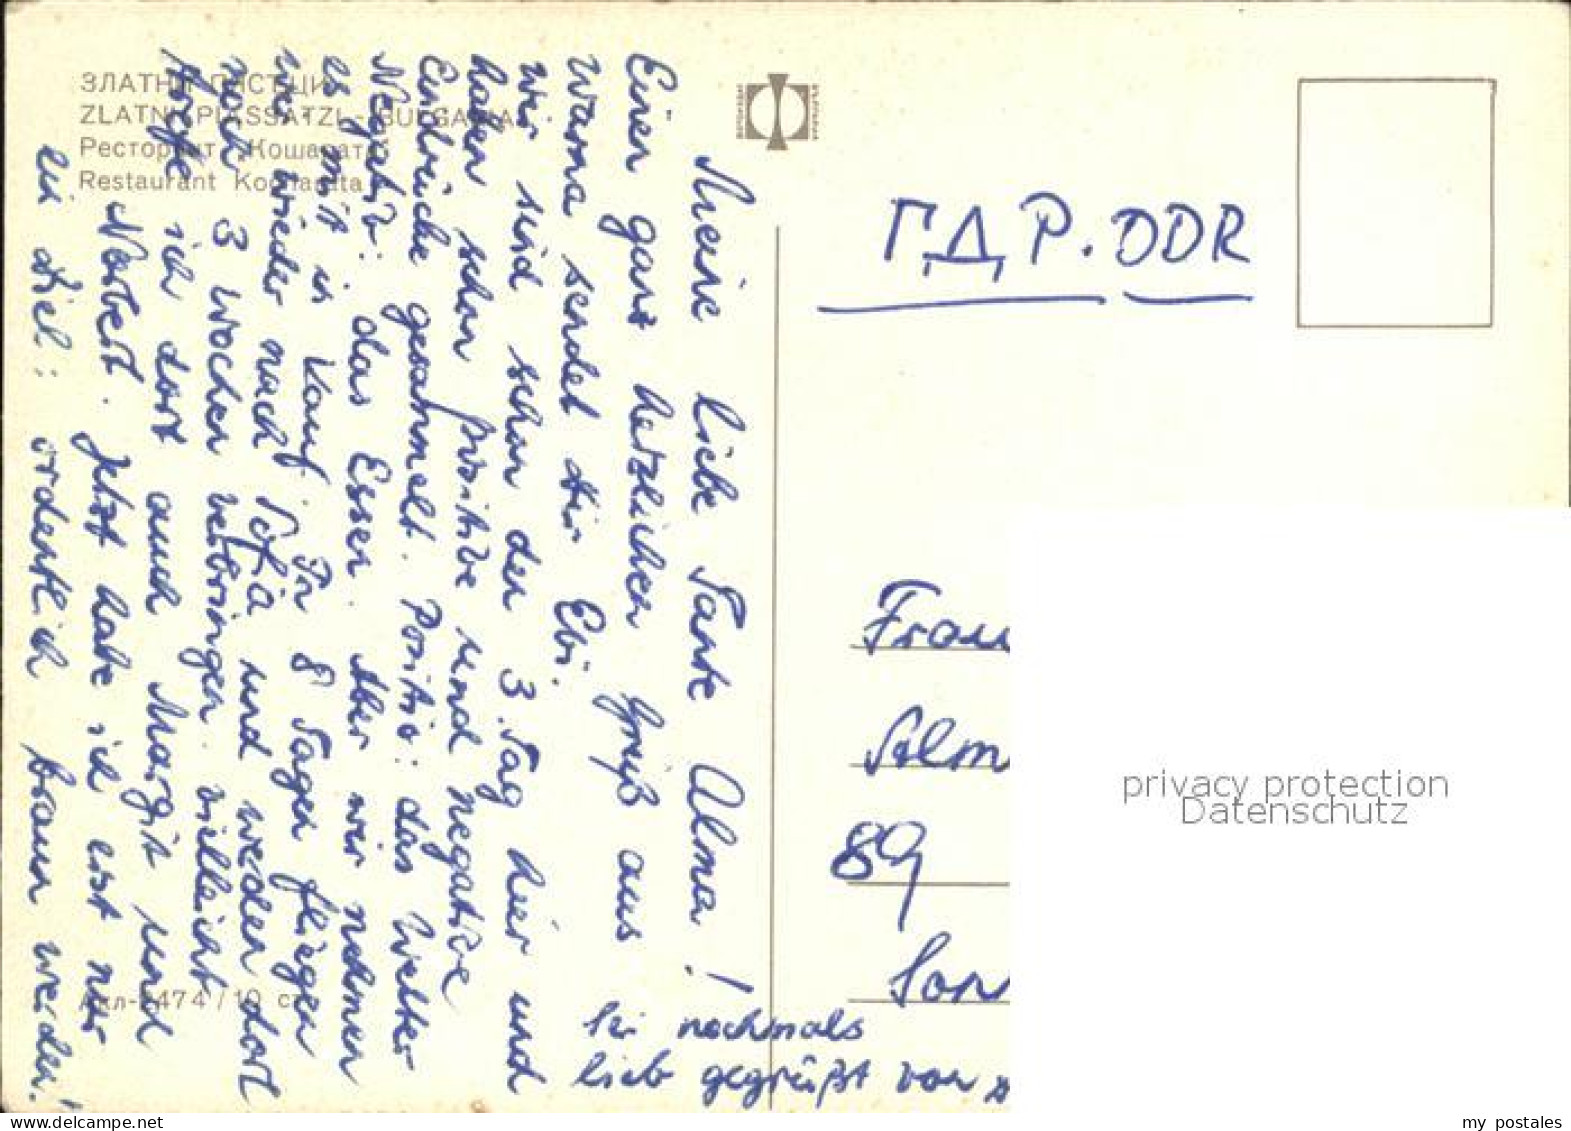 ЗЛАТНИ ПЯСЪЦИ
ZLATNI PIASSATZI - BULGARIA
Ресторант „Кошарата“
Restaurant Kocharata
Meine liebe Tante Alma!
Einen ganz herzlichen Gruß aus
Warna sendet dir Evi.
Wir sind schon den 3. Tag hier und
haben schon positive und negative
Eindrücke gesammelt. Positiv: das Wetter
Negativ: das Essen. Aber wir nehmen
es mit in Kauf. In 8 Tagen fliegen
wir wieder nach Sofia und werden dort
noch 3 Wochen verbringen. Vielleicht
ich dort auch Margit und
Norbert. Jetzt habe ich erst nur
ein Ziel: ordentlich braun werden!
Sei nochmals
lieb gegrüßt von
Акл-2474/10 ст
Г.Д.Р. DDR
Frau
Alm
89
Son
privacy protection
Datenschutz
delcampe.net
my postales